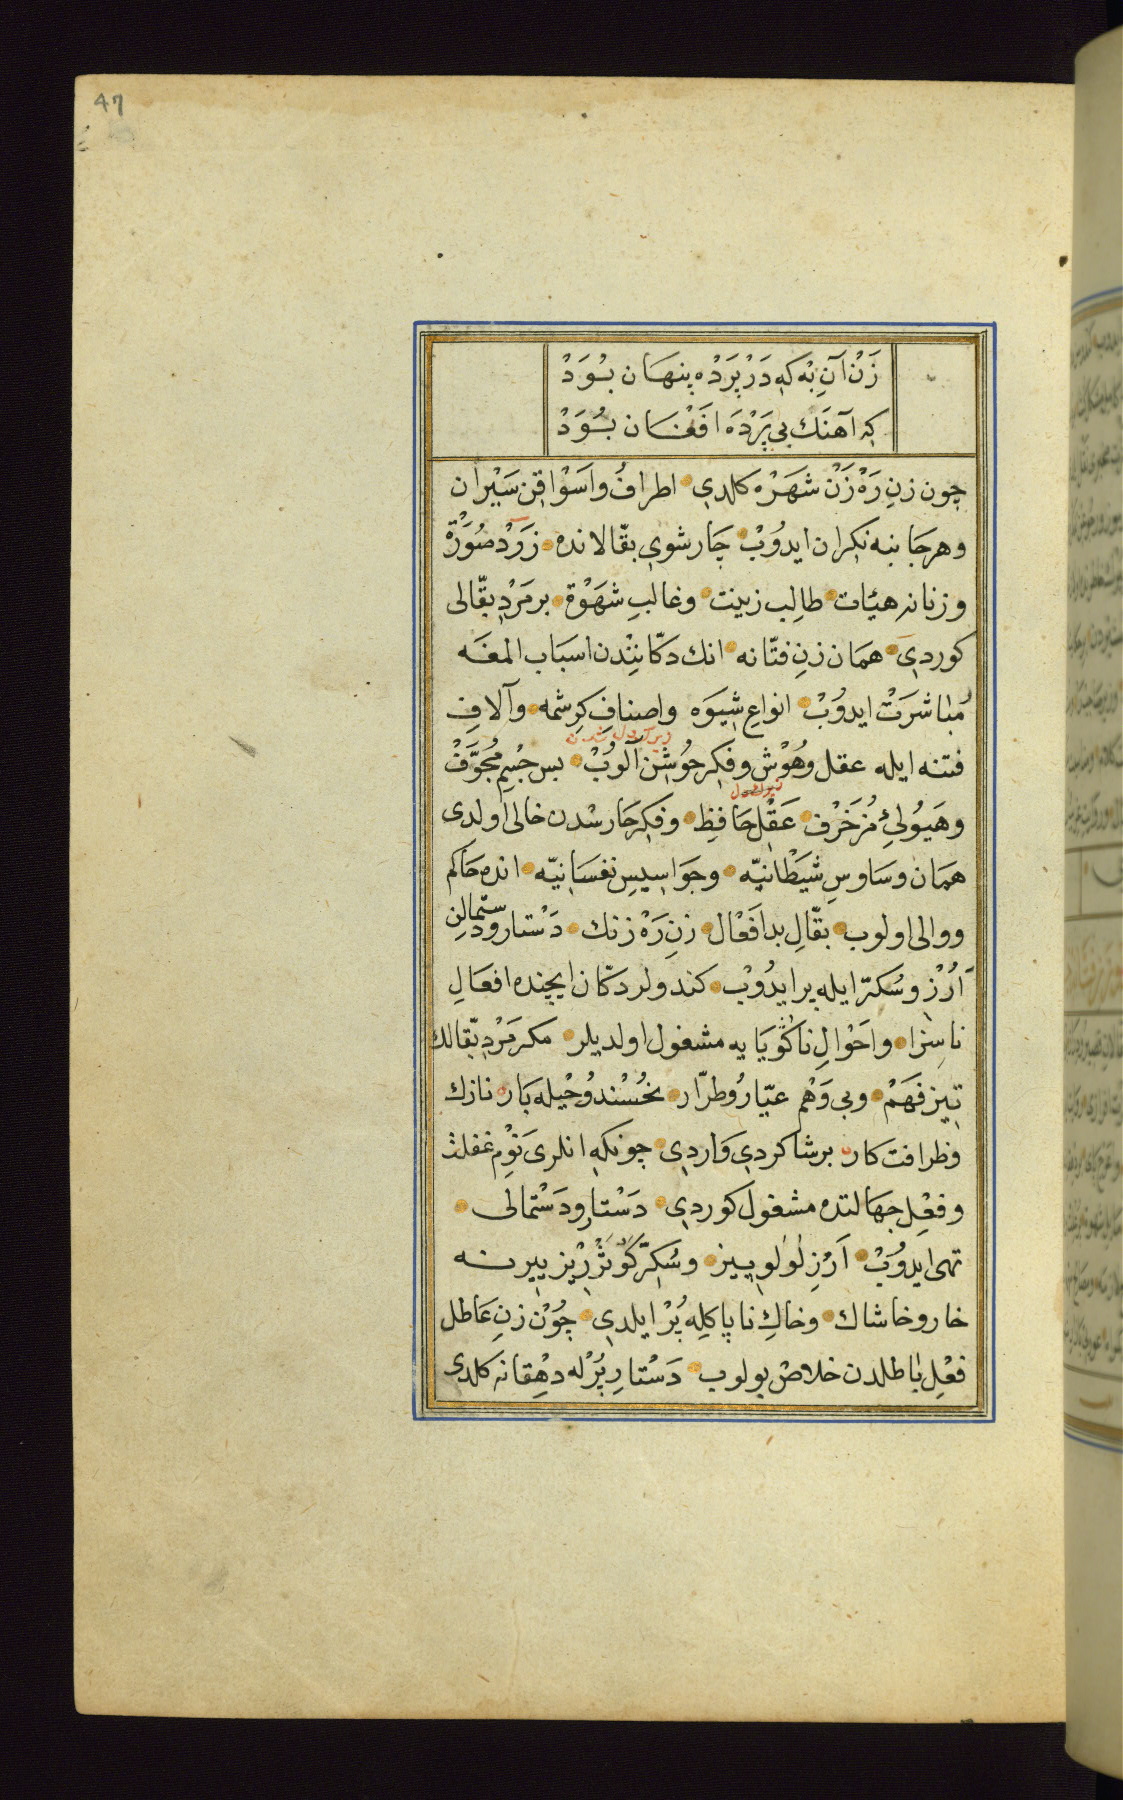 47
زَنْ آنِ بْه كِه دَرْ پَرْدَه پنهان بُوَدْ
كِه آهَنك بي پَرْدَه افَغْان بُوَدْ
چون زنِ رَهْ زَنْ شهَرْه كلدي اطرافُ واَسْواقِن سَيْران
وهر جانبه نكران ايدُوبْ چارشوي بقّالانده زَرْدصُوَرْة
وزنانه هيئات طالِب زينت وغالبِ شهَوْة بر مَرْدِ بقّالى
كوردي همان زنِ فتّانه انك دكّانِنْدن اسباب المغَه
مُباشرَتْ ايدوُبْ انواعِ شِيوَه واصنافِ كرِشمه وآلافِ
فتنه ايله عقل وهُوْش وفكِر جُوشِن آلوُبْ بس جِسْمِ مُجوَّفْ
وهَيُولىُ مُزَخرْف عَقْلِ حافِظ وفكِر جارسْدن خالى اولدى
همان وساوسِ شيَطْانيّه وجواسيسِ نفسانيّه انده حاكم
ووالى اولوب بقّالِ بدافَعْال زنِ رَهْ زنك دَسْتار ودستمالِن
اَرُزْ وسُكرّ ايله پر ايدُوبْ كندولر دكّان ايچنده افعالِ
ناسِزا واحْوالِ ناكوُيايه مشغول اولديلر مكر مَرْدِ بّقالك
تيز فَهَمْ وبى وَهْم عيّارُ وطرّار نخُسْندوُ حيْله بار نازك
وظرافت كار برشاكردي واردي چونكه انلرى نَوْمِ غفلت
وفعْلِ جهالتده مشغول كوردي دَسْتار ودَسْتمالى
تهى ايدوُبْ اَرُزِ لؤلؤ بيز وسُكرّ كَوثَرْ ريْز ييرنه
خار وخاشاك وخاكِ ناپاكله پُرْ ايلدي چوُنْ زنِ عاطل
فعْلِ باطلدن خلاصْ بولوب دَسْتارِ پُرْله دهْقانه كلدى